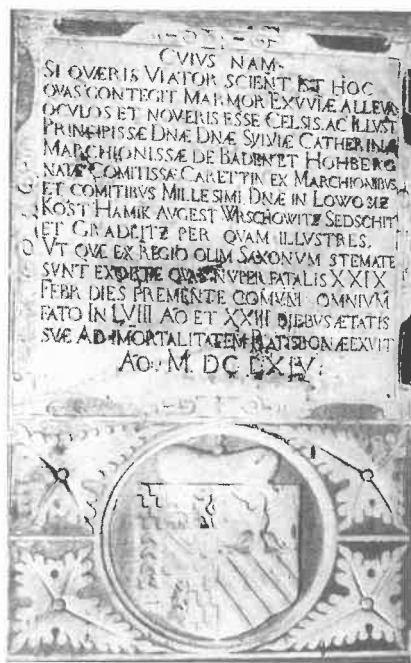 CVIVS NAM
SI QVÆRIS VIATOR SCIENT IST HOC
QVAS CONTEGIT MARMOR EXVVIÆ ALLEVA
OCVLOS ET NOVERIS ESSE CELSIS. AC ILLVST
PRINCIPISSÆ DNÆ DNÆ SYLVIÆ CATHERINÆ
MARCHIONISSÆ DE BADEN ET HOHBERG
NATÆ COMITISSÆ CARETTIN EX MARCHIONIBVS
ET COMITIBVS MILLESIMI DNÆ IN LOWOSIZ
KOST HAMIK AVGEST WRSCHOWITZ SEDSCHIT
ET GRADLITZ PER QVAM ILLVSTRES.
VT QVÆ EX REGIO OLIM SAXONVM STEMATE
SVNT EXORTÆ QVAS NVPER FATALIS XXIX
FEBR DIES PREMENTE COMVNI OMNIVM
FATO IN LVIII AO ET XXIII DIEBVS ÆTATIS
SVÆ AD IMORTALITATEM RATISBONÆ EXVIT
AO. M. DC